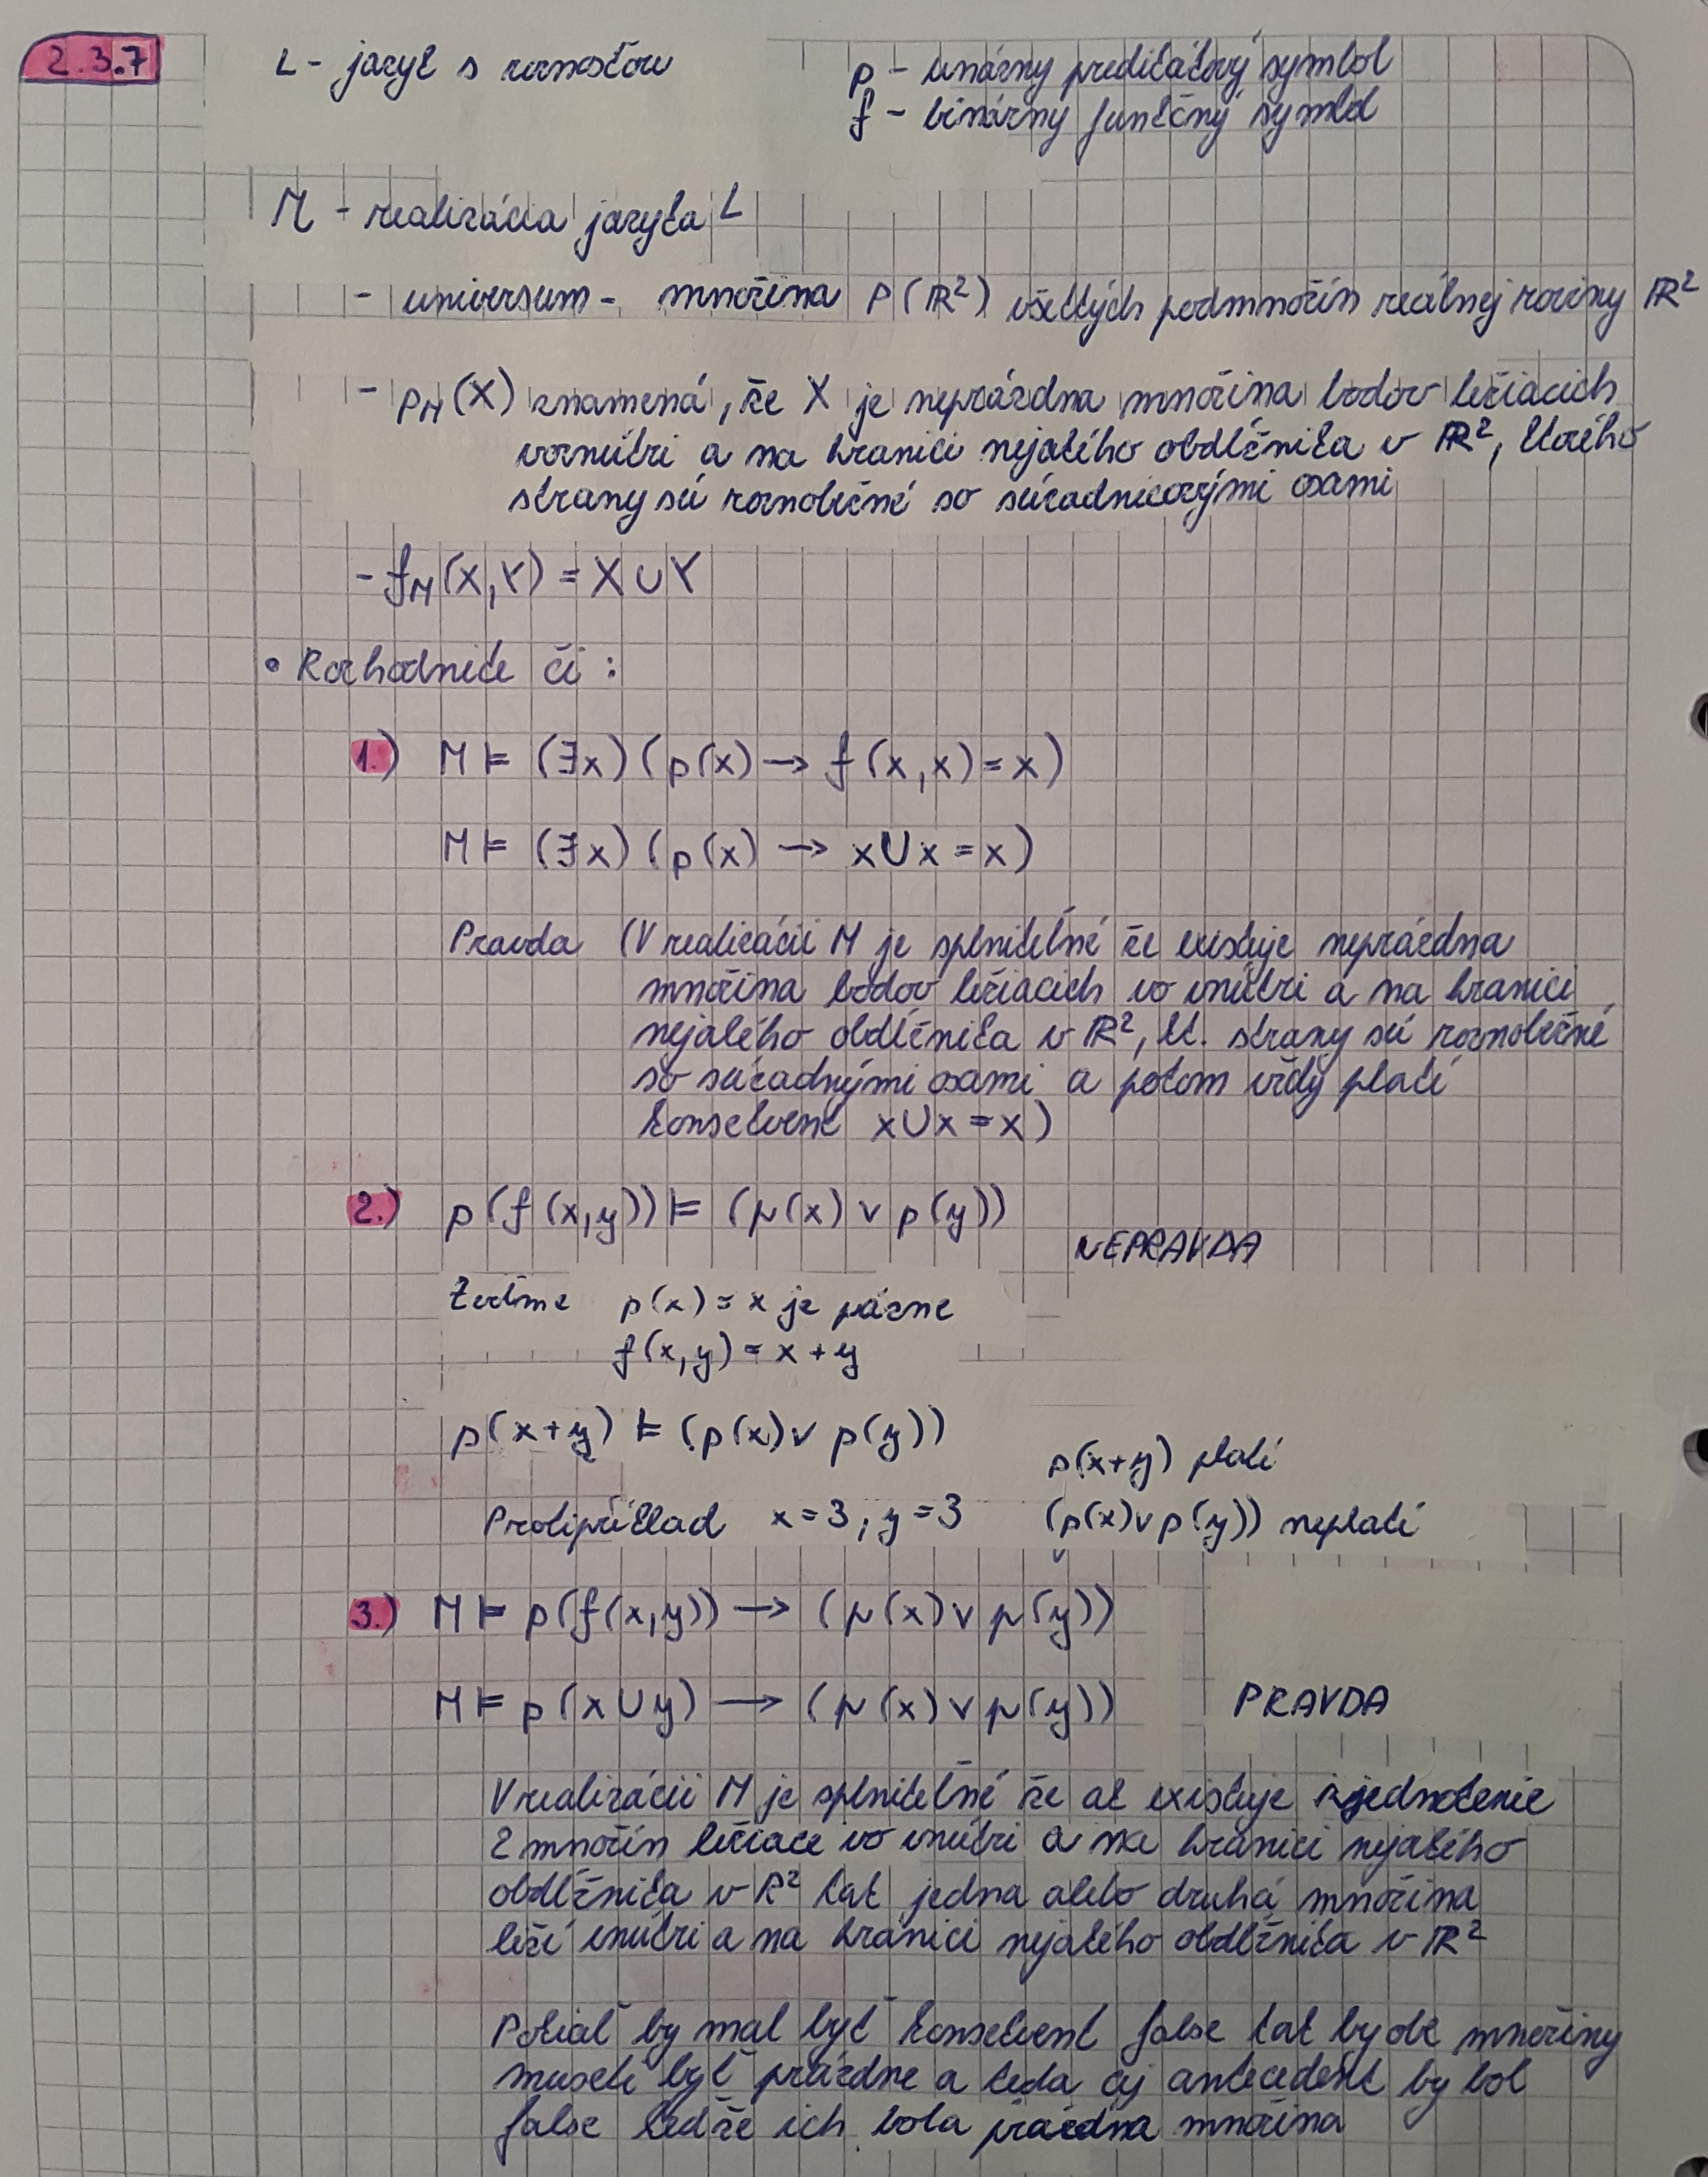 2.3.7
L - jazyk s rovnosťou
p - unárny predikátový symbol
f - binárny funkčný symbol
M - realizácia jazyka L
- universum - množina P(ℝ²) všetkých podmnožín reálnej roviny ℝ²
- p_M(X) znamená, že X je neprázdna množina bodov ležiacich
vovnútri a na hranici nejakého obdĺžnika v ℝ², ktorého
strany sú rovnobežné so súradnicovými osami
- f_M(X,Y) = X ∪ Y
• Rozhodnite či :
1.) M ⊨ (∃x) (p(x) → f(x,x) = x)
M ⊨ (∃x) (p(x) → x ∪ x = x)
Pravda (V realizácii M je splniteľné že existuje neprázdna
množina bodov ležiacich vo vnútri a na hranici
nejakého obdĺžnika v ℝ², kt. strany sú rovnobežné
so súradnými osami a potom vždy platí
konsekvent x ∪ x = x)
2.) p(f(x,y)) ⊨ (p(x) ∨ p(y))
NEPRAVDA
Zvoľme p(x) = x je párne
f(x,y) = x + y
p(x+y) ⊨ (p(x) ∨ p(y))
p(x+y) platí
Protipříklad x = 3, y = 3
(p(x) ∨ p(y)) neplatí
3.) M ⊨ p(f(x,y)) → (p(x) ∨ p(y))
M ⊨ p(x ∪ y) → (p(x) ∨ p(y))
PRAVDA
V realizácii M je splniteľné že ak existuje zjednotenie
2 množín ležiace vo vnútri a na hranici nejakého
obdĺžnika v R² tak jedna alebo druhá množina
leží vnútri a na hranici nejakého obdĺžnika v ℝ²
Pokiaľ by mal byť konsekvent false tak by obe množiny
museli byť prázdne a teda aj antecedent by bol
false keďže ich bola prázdna množina